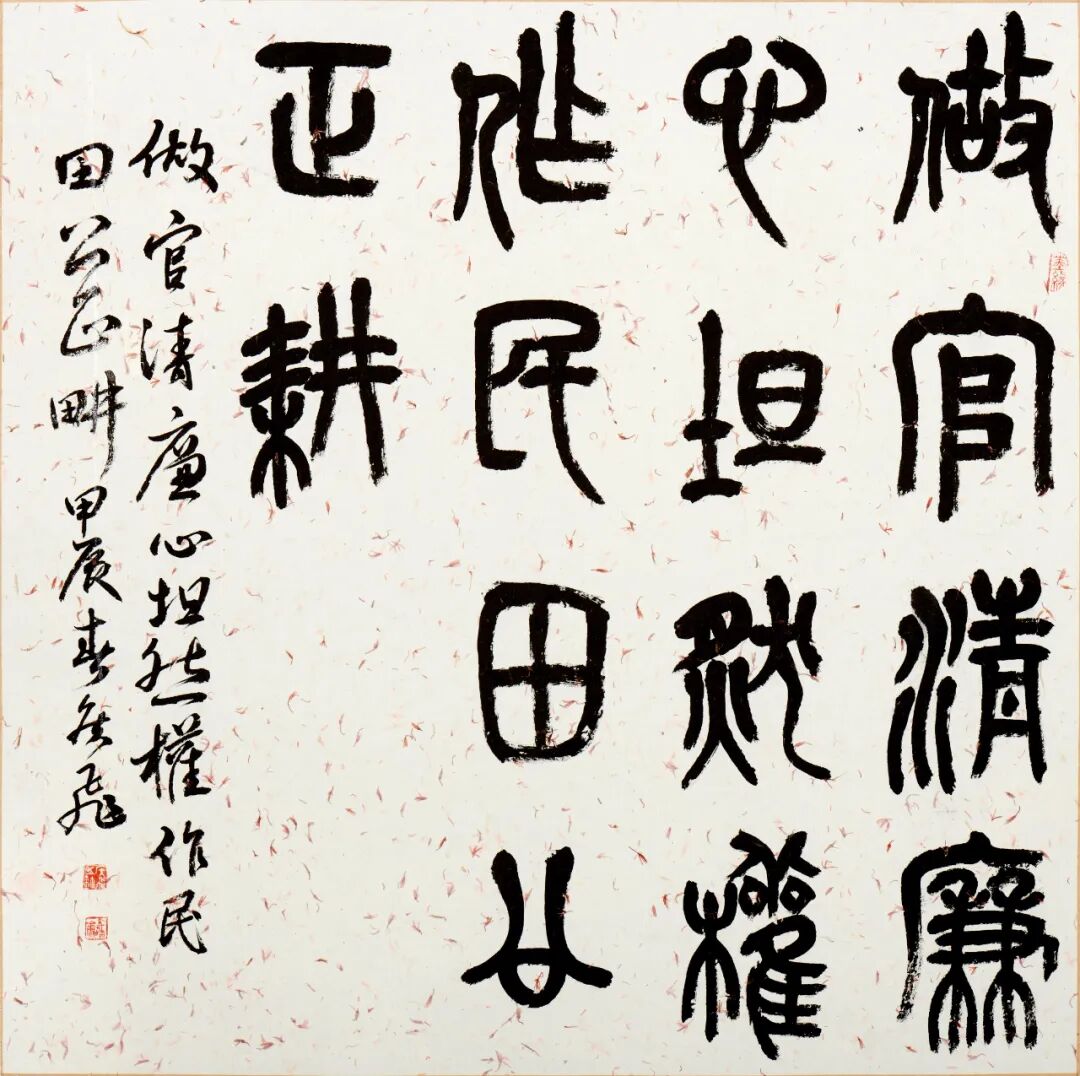 做官清廉
心坦然權
作民田公
正耕
做官清廉心坦然權作民
田公正畊甲辰春飛